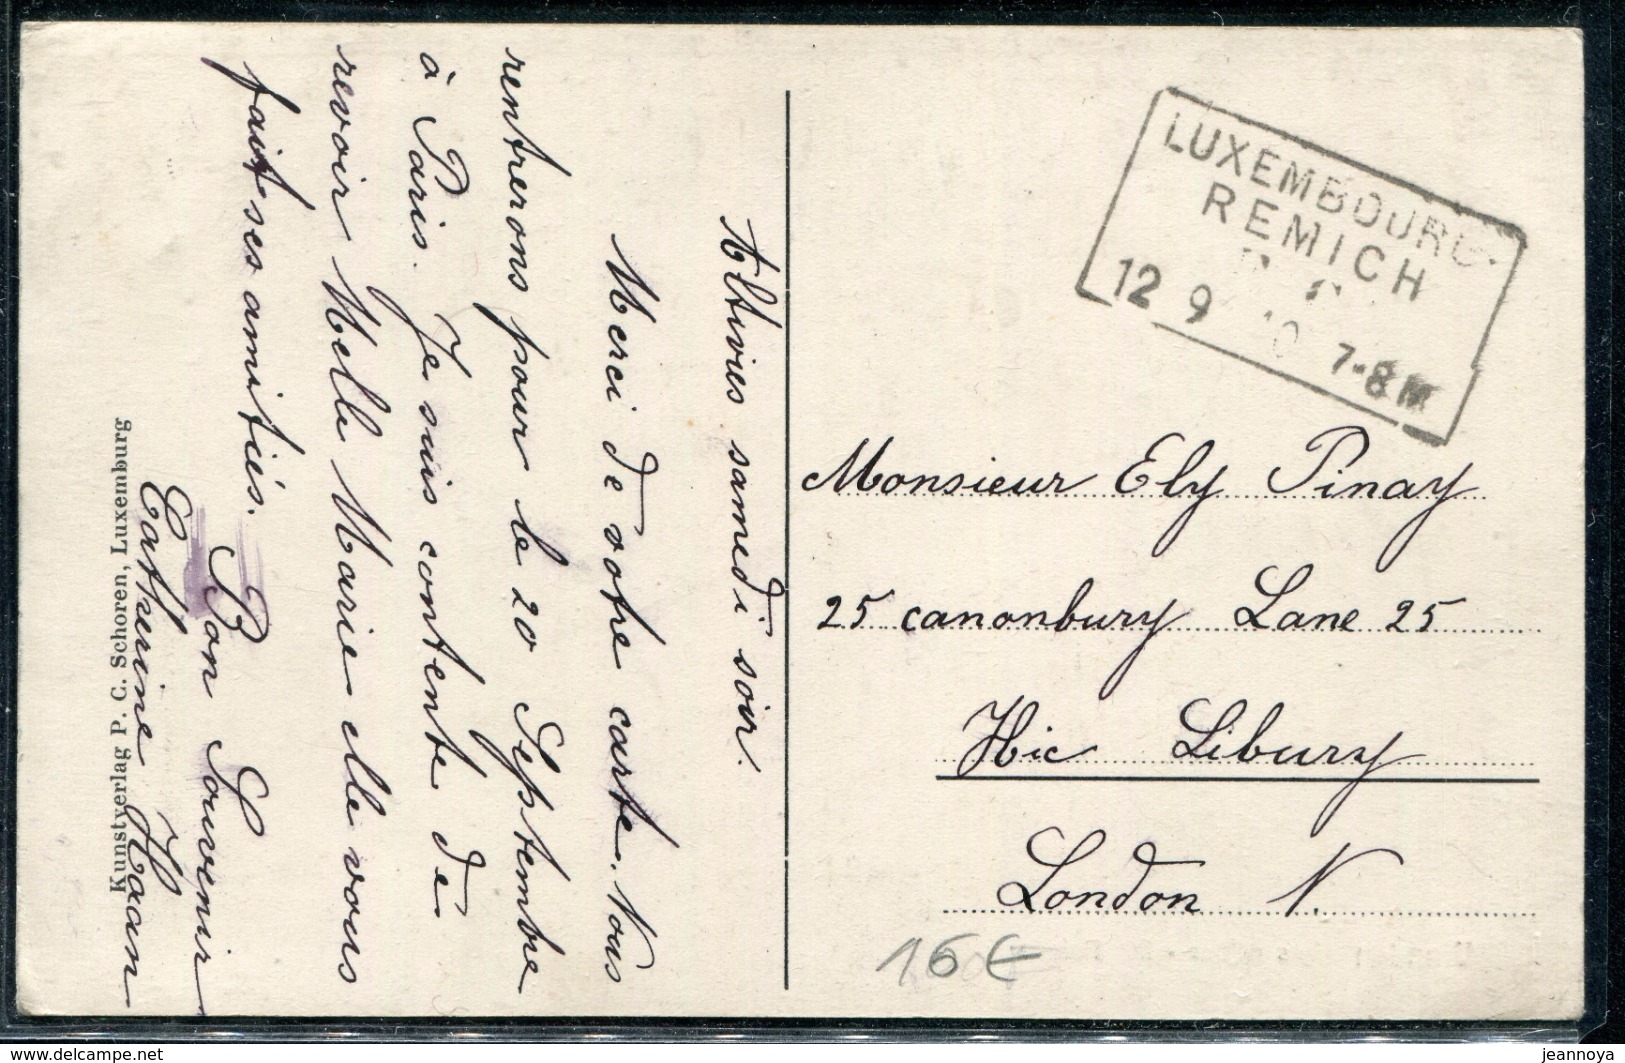 Altwies samedi soir.
Merci de votre carte. Nous
rentrerons pour le 20 Septembre
à Paris. Je suis contente de
revoir Melle Marie elle vous
fait ses amitiés.
Bon Souvenir
Catherine Haan
Kunstverlag P. C. Schoren, Luxemburg
LUXEMBOURG-
REMICH
12 9 10 7-8 M
Monsieur Ely Pinay
25 canonbury Lane 25
Hic Libury
London N.
16 €
www.delcampe.net
jeannoya